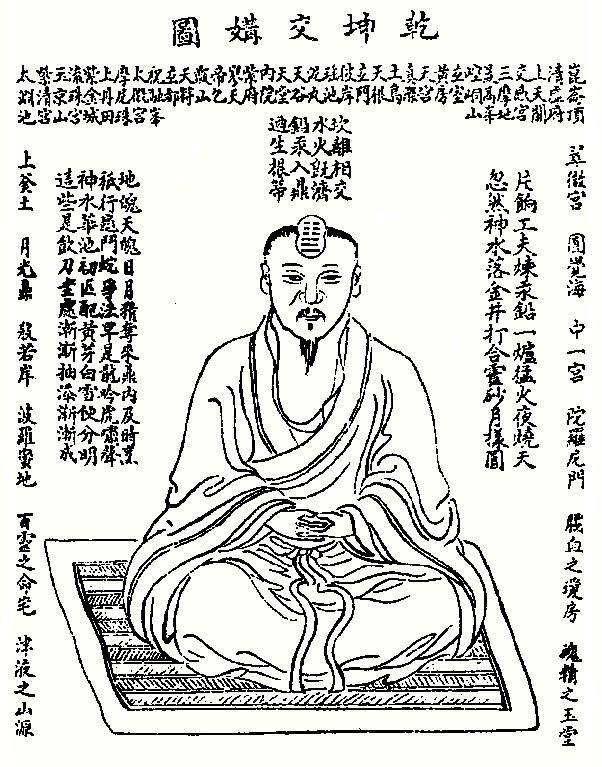 乾坤交媾圖
崑崙頂
清虛府
上天關
交感宮
三摩地
最高峯
崆峒山
玄室
黃房
天宮
真際
上島
天根
玄門
彼岸
瑤池
泥丸
天谷
天堂
內院
紫府
寥天
帝乙
甑山
天符
玄都
祝融峯
太微宮
摩尼珠
上丹田
紫金城
流珠宮
玉京山
紫清宮
太淵池
坎離相交
水火旣濟
鉛汞入鼎
適生根蒂
翠微宮 圓覺海 中一宮 陀羅尼門 腦血之瓊房 魂精之玉堂
片餉工夫煉汞鉛一爐猛火夜燒天
忽然神水落金井打合靈砂月樣圓
地魄天魂日月精奪來鼎內及時烹
秪行龜鬥蛇爭法早是龍吟虎嘯聲
神水華池初匹配黃芽白雪便分明
這些是飲刀圭處漸漸抽添漸漸成
上釜土 月光鼎 般若岸 波羅蜜地 百靈之命宅 津液之山源